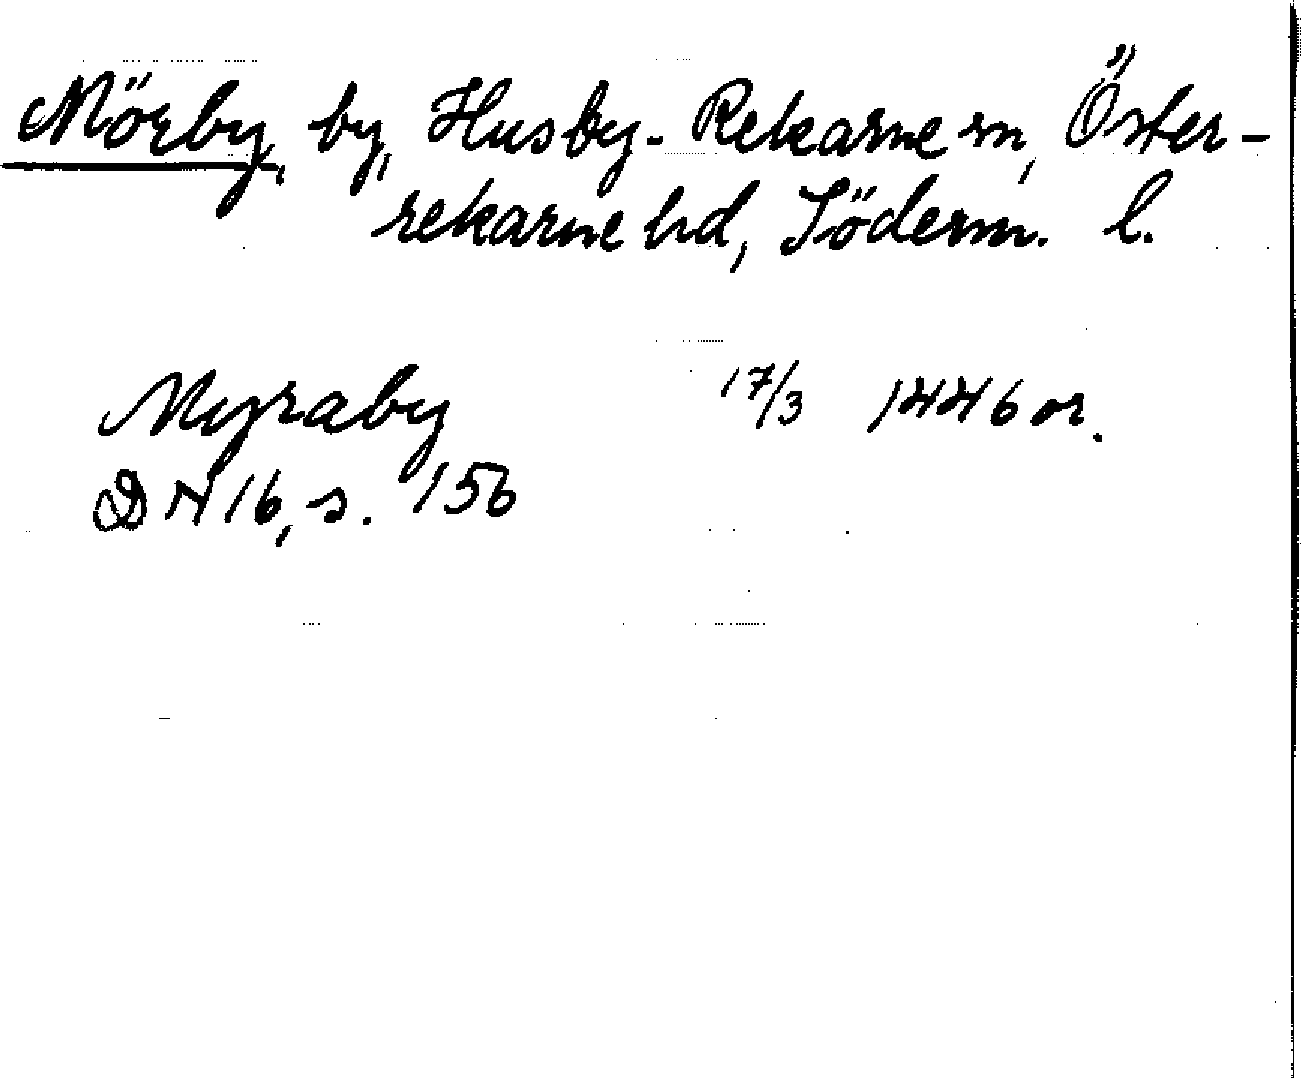 Mörby, by, Husby-Rekarne sn, Öster-
rekarne hd, Söderm. l.
Myraby 17/3 1446 or.
DN 16, s. 156